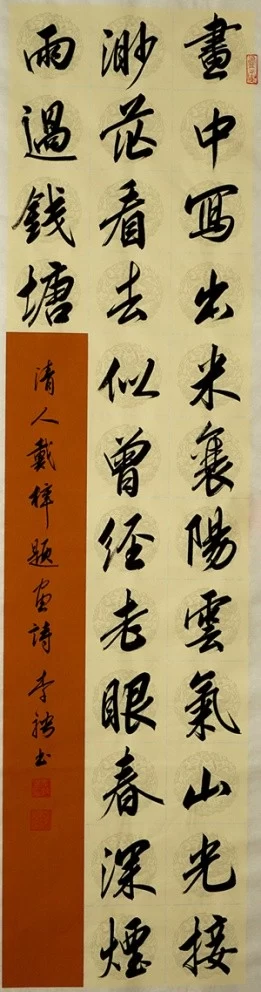 畫中寫出米襄陽雲氣山光接
渺茫看去似曾經老眼春深煙
雨過錢塘
清人戴梓題畫詩 李 書